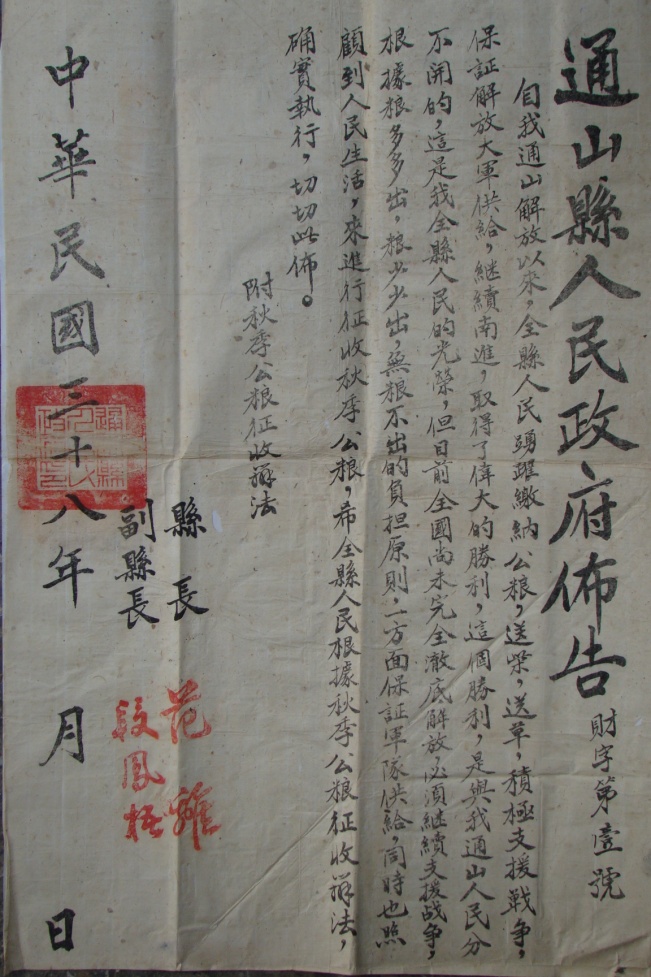 通山縣人民政府佈告
財字第壹號
自我通山解放以來，全縣人民踴躍繳納公粮，送柴，送草，積極支援戰争，
保証解放大軍供給，繼續南進，取得了偉大的勝利，這個勝利，是與我通山人民分
不開的，這是我全縣人民的光榮，但目前全國尚未完全澈底解放必須繼續支援战争，
根據粮多多出，粮少少出，無粮不出的負担原則，一方面保証軍隊供給，同時也照
顧到人民生活，來進行征收秋季公粮，希全縣人民根據秋季公粮征收辦法，
确實執行，切切此佈。
附秋季公粮征收辦法
縣長 范
副縣長 段鳳梧
中華民國三十八年 月 日